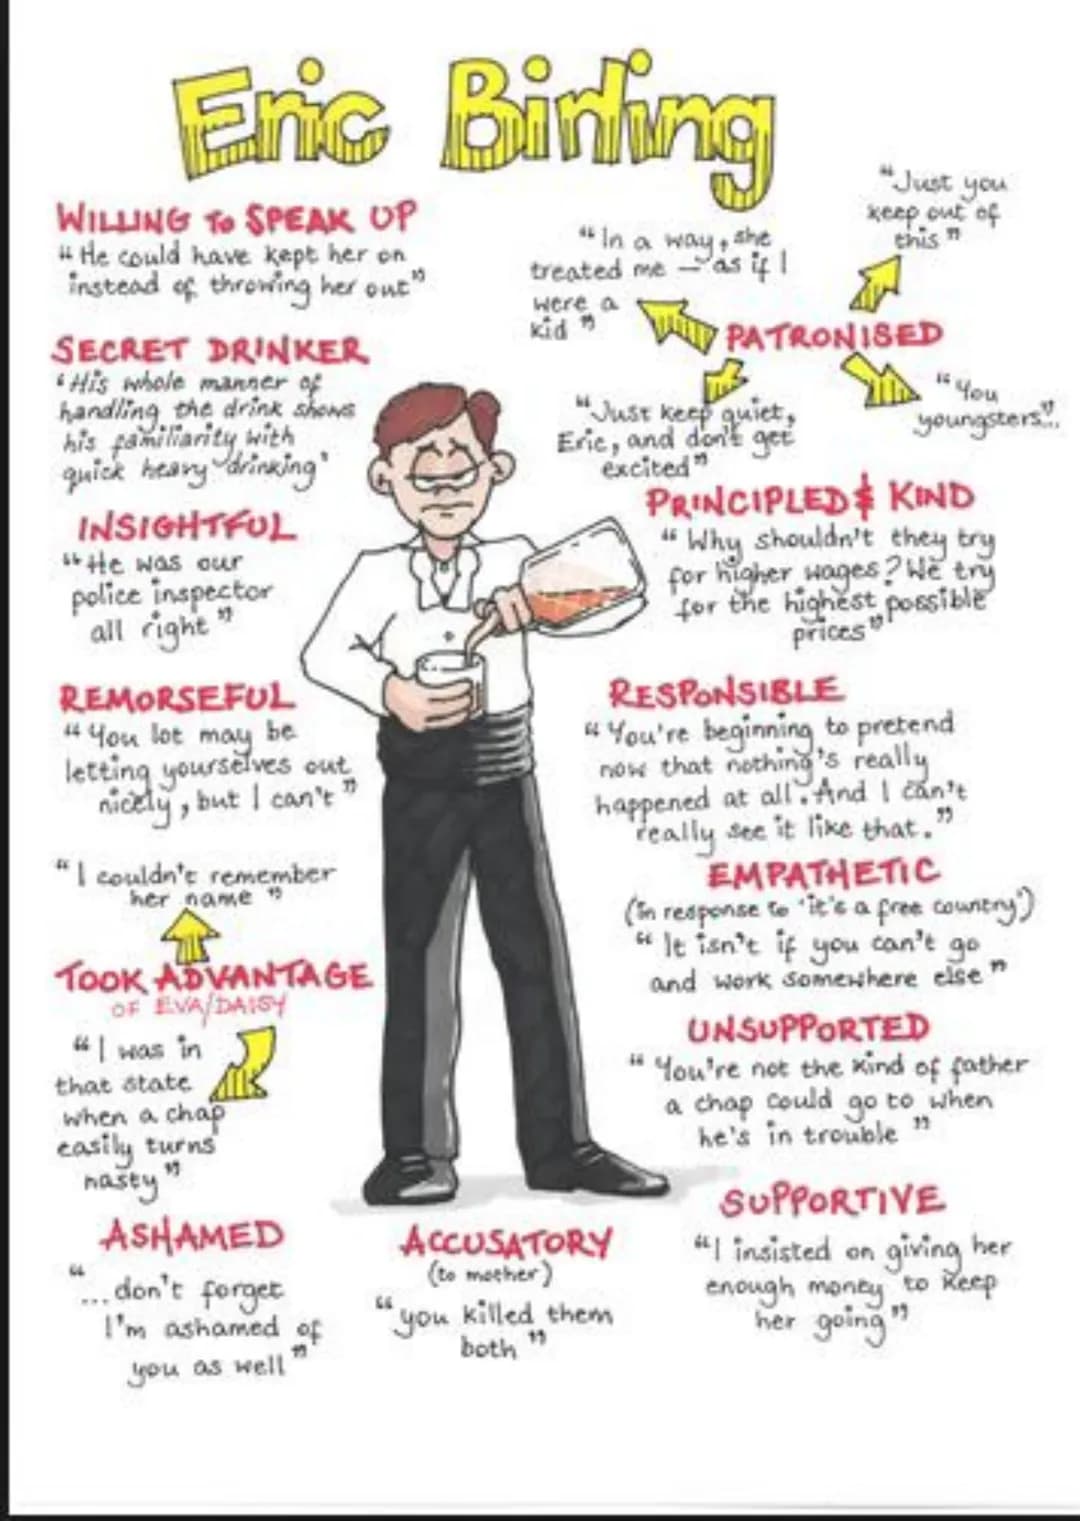 Eric Birling
WILLING TO SPEAK UP
"He could have kept her on
instead of throwing her out"
SECRET DRINKER
'His whole manner of
handling the drink shows
his familiarity with
quick heavy drinking'
INSIGHTFUL
"He was our
police inspector
all right"
REMORSEFUL
"You lot may be
letting yourselves out
nicely, but I can't"
"I couldn't remember
her name"
TOOK ADVANTAGE
OF EVA/DAISY
"I was in
that state
when a chap
easily turns
nasty"
ASHAMED
"...don't forget
I'm ashamed of
you as well"
ACCUSATORY
(to mother)
"you killed them
both"
"In a way, she
treated me – as if I
were a
kid"
"Just you
keep out of
this"
PATRONISED
"Just keep quiet,
Eric, and don't get
excited"
"You
youngsters"...
PRINCIPLED & KIND
"Why shouldn't they try
for higher wages? We try
for the highest possible
prices"
RESPONSIBLE
"You're beginning to pretend
now that nothing's really
happened at all. And I can't
really see it like that."
EMPATHETIC
(in response to 'it's a free country')
"It isn't if you can't go
and work somewhere else"
UNSUPPORTED
"You're not the kind of father
a chap could go to when
he's in trouble"
SUPPORTIVE
"I insisted on giving her
enough money to keep
her going"